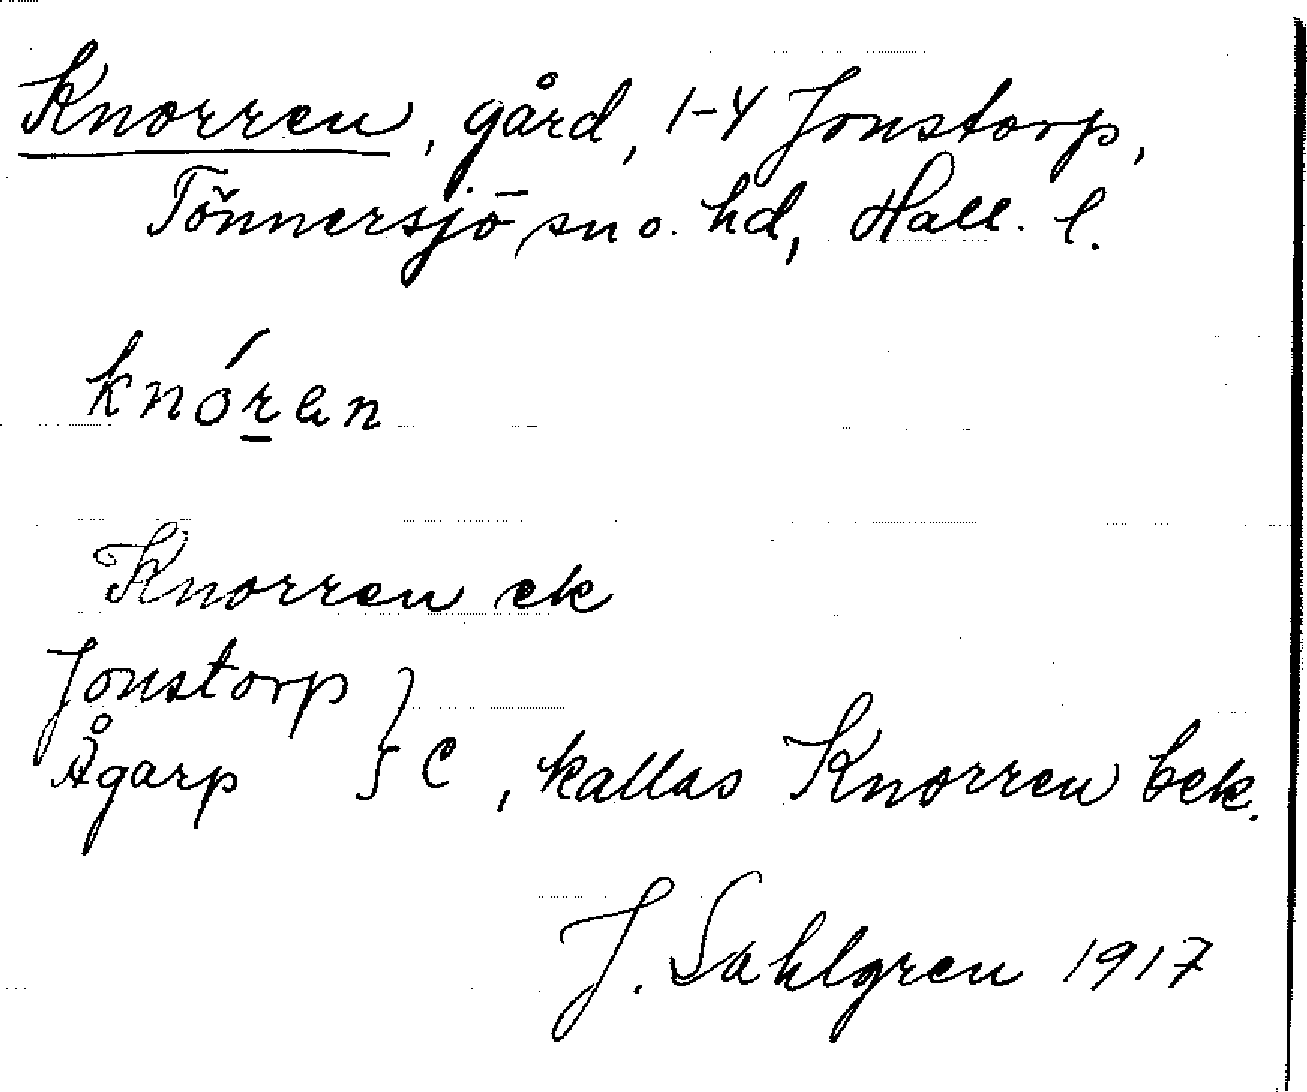 Knorren, gård, 1-4 Jonstorp,
Tönnersjö sn o. hd, Hall. l.
knóṟen
Knorren ek
Jonstorp
Ågarp } C, kallas Knorren bek.
J. Sahlgren 1917